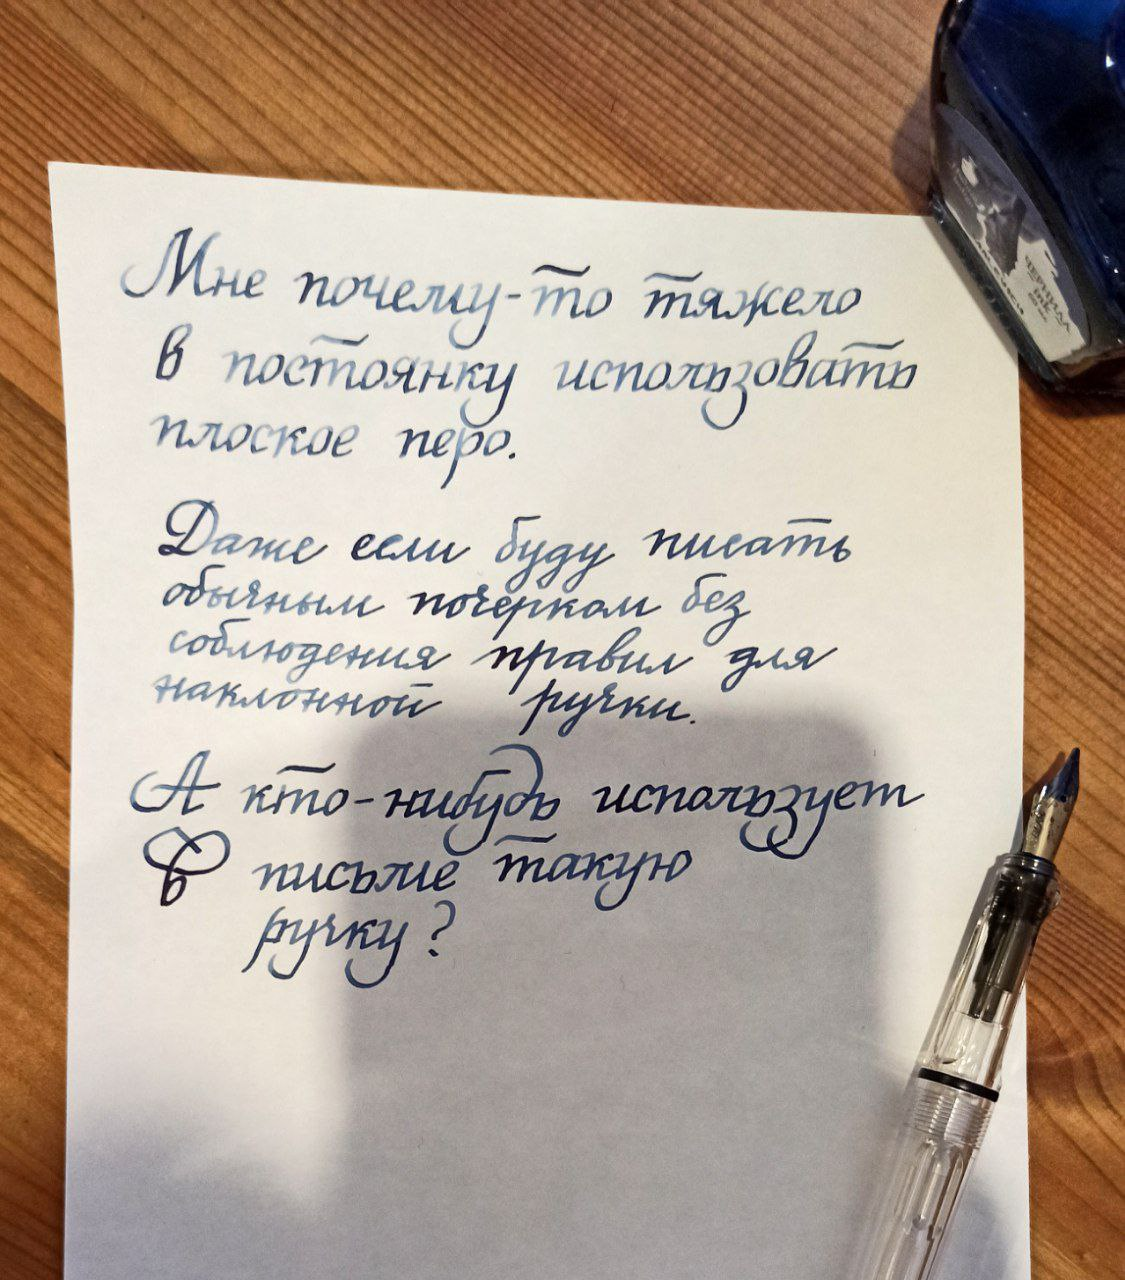 Мне почему-то тяжело
в постоянку использовать
плоское перо.
Даже если буду писать
обычным почерком без
соблюдения правил для
наклонной ручки.
А кто-нибудь использует
в письме такую
ручку?
ЧЕРНИЛА
INK